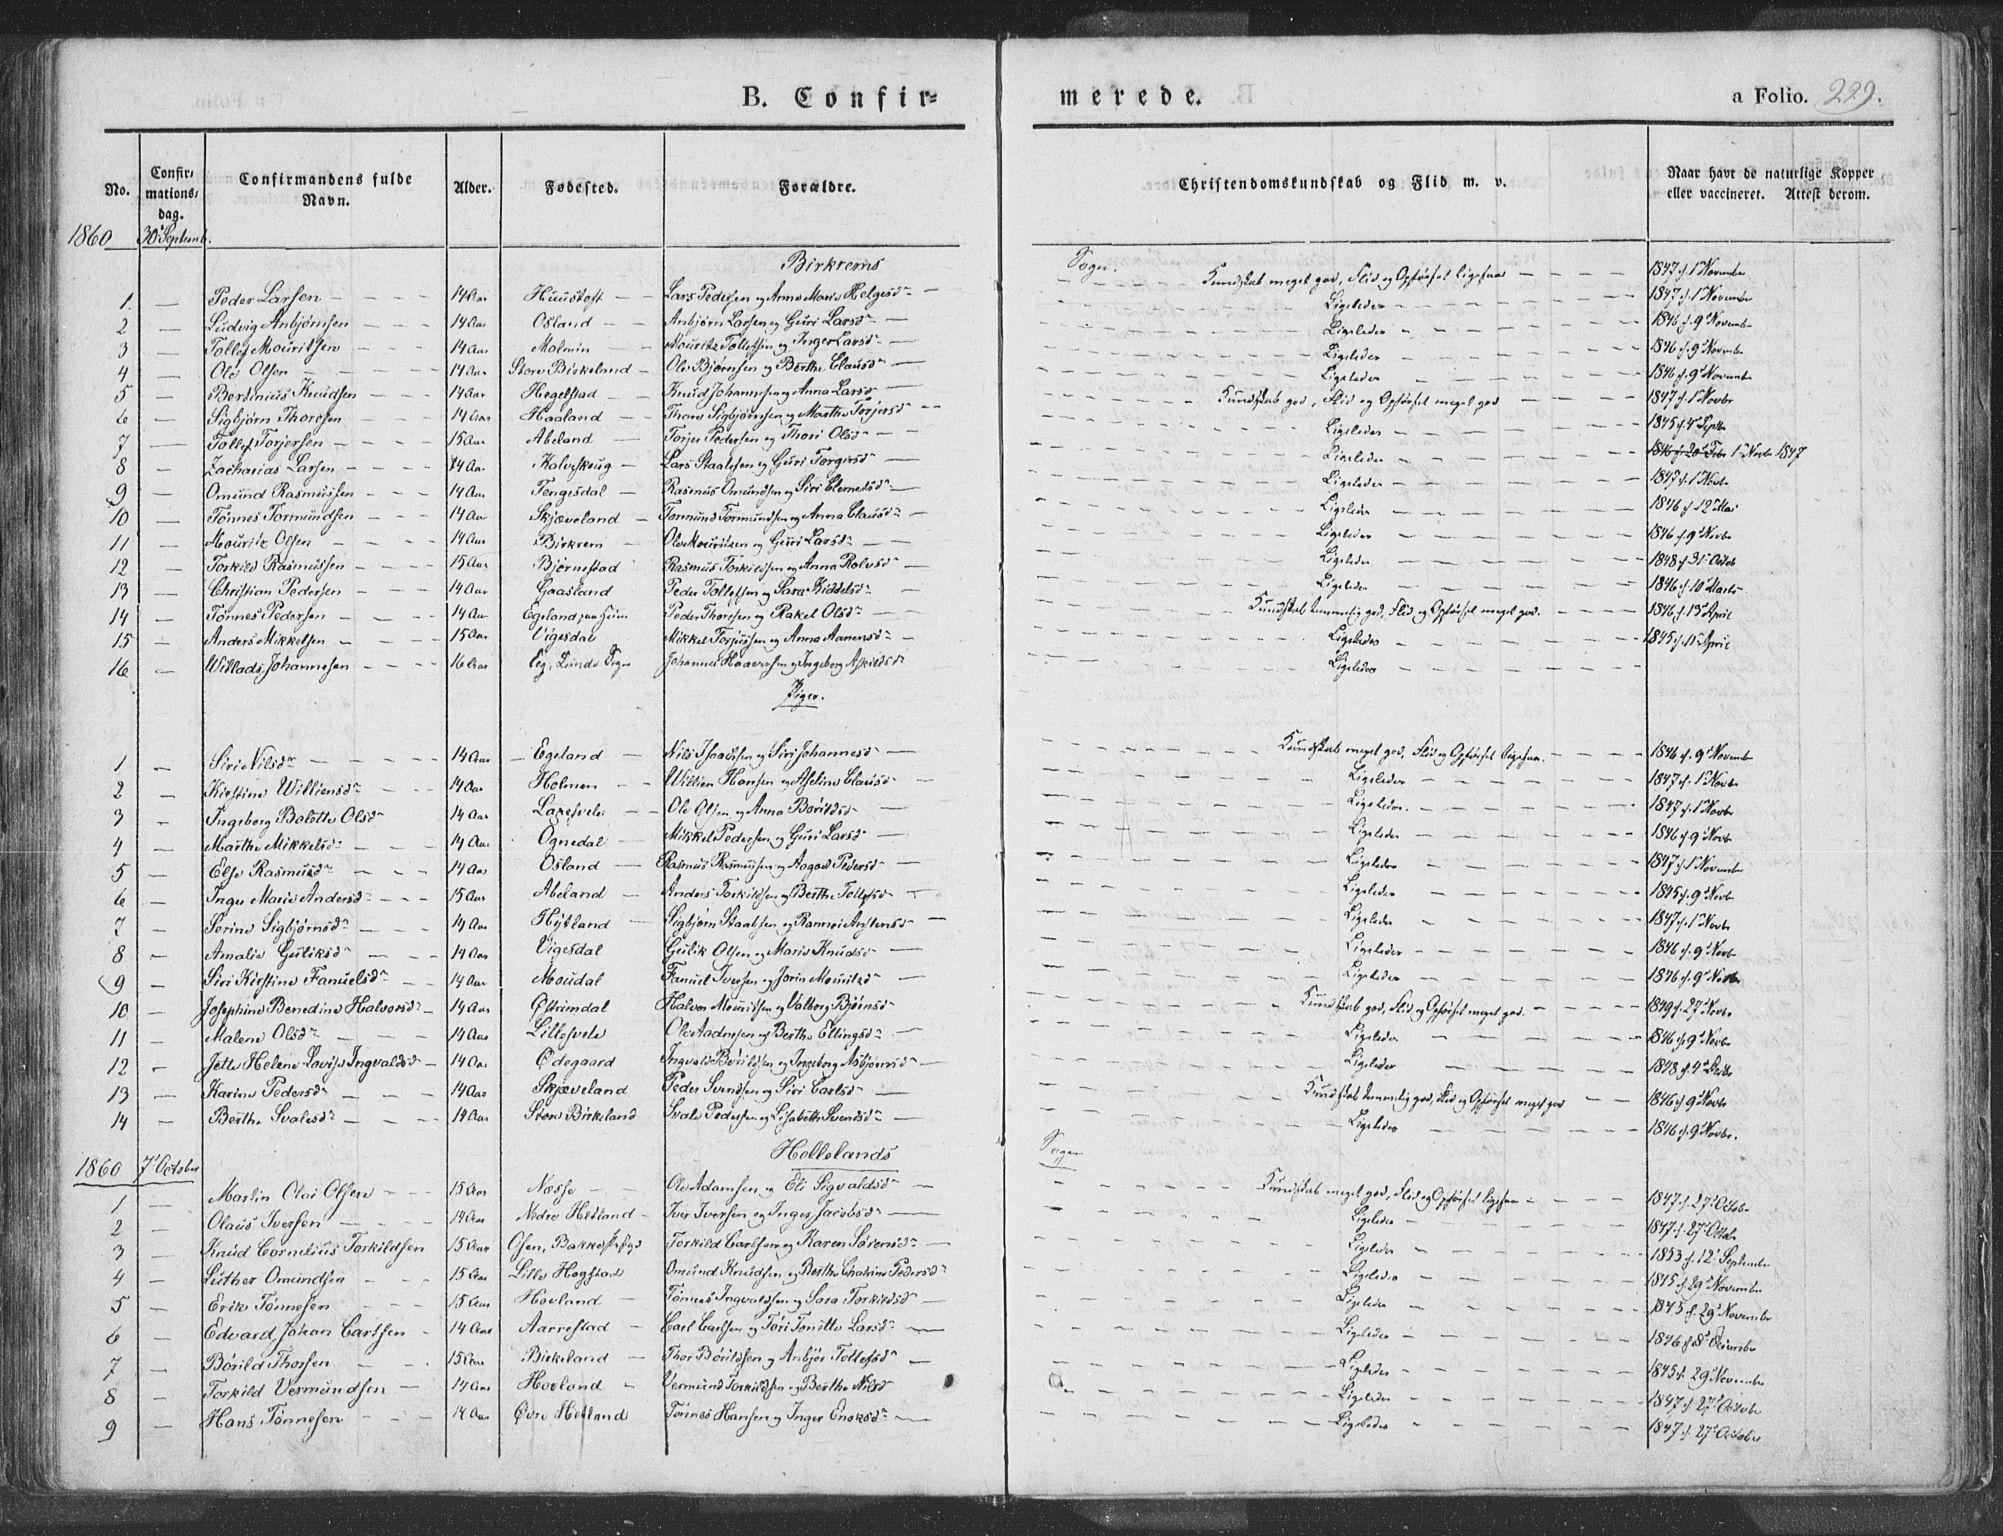 B. Confir-
merede.
a Folio. 229.
No. Confirmationsdag. Confirmandens fulde Navn. Alder. Fødested. Forældre. Christendomskundskab og Flid m. v. Naar havt de naturlige Kopper eller vaccineret. Attest derom.
1860 30 Septemb.
Birkrems Sogn.
1. — Peder Larsen 14 Aar Lars Pedersen og Anna Maria Helgesd Kundskab meget god, Flid og Opførsel ligesaa 1847 f. 1 Novembr
2 — Ludvig Anbjørnsen 14 Aar Osland Anbjørn Larsen og Guri Larsd Ligeledes 1847 f. 1 Novembr
3 — Tollef Mouritsen 14 Aar Malmin Mouritz Tollefsen og Inger Larsd Ligeledes 1846 f. 9 Novembr
4 — Ole Olsen 14 Aar Store Birkeland Ole Bjørnsen og Berthe Clausd Ligeledes 1846 f. 9 Novembr
5 — Bertinius Knudsen 14 Aar Hegelstad Knud Johannesen og Anna Larsd Ligeledes 1846 f. 9 Novembr
6 — Sigbjørn Thoresen 14 Aar Haaland Thore Sigbjørnsen og Marthe Torjersd Kundskab god, Flid og Opførsel meget god 1847 f. 1 Novbr
7 — Tollef Torjersen 15 Aar Abeland Torjer Pedersen og Thori Olsd Ligeledes 1845 f. 4 Septbr
8 — Zacharias Larsen 14 Aar Kalveskoug Lars Staalesen og Guri Torgersd Ligeledes 1 Novbr 1847
9 — Omund Rasmussen 14 Aar Tengesdal Rasmus Omundsen og Siri Clemedsd Ligeledes 1847 f. 1 Novbr
10 — Tønnes Tormundsen 14 Aar Skjæveland Tormund Tormundsen og Anna Clausd Ligeledes 1846 f. 12 Mai
11 — Mouritz Olsen 14 Aar Birkrem Ole Mouritzen og Guri Larsd Ligeledes 1846 f. 9 Novbr
12 — Torkild Rasmussen 15 Aar Bjørnestad Rasmus Torkildsen og Anna Rolvsd Ligeledes 1848 f. 31 Octob
13 — Christian Pedersen 14 Aar Gaasland Peder Tollefsen og Sara Kiddelsd Ligeledes 1846 f. 10 Marts
14 — Tønnes Pedersen 14 Aar Egeland paa Heien Peder Thoresen og Rakel Olsd Kundskab temmelig god, Flid og Opførsel meget god. 1846 f. 13 April
15 — Anders Mikkelsen 15 Aar Vigesdal Mikkel Torjussen og Anna Aanensd Ligeledes 1845 f. 11 April
16 — Willads Johannesen 16 Aar Eeg, Lunds Sogn Johannes Haaversen og Ingeborg Askildsd Ligeledes
Piger.
1 — Siri Nilsd 14 Aar Egeland Nils Isaachsen og Siri Johannesd Kundskab meget god, Flid og Opførsel ligesaa. 1846 f. 9 Novembr
2 — Kirstine Williensd 14 Aar Holmen Willien Hansen og Aseline Clausd Ligeledes 1847 f. 1 Novbr
3 — Ingeborg Bolette Olsd 14 Aar Laxesvele Ole Olsen og Anna Børildsd Ligeledes. 1847 f. 1 Novbr
4 — Marthe Mikkelsd 14 Aar Ognedal Mikkel Pedersen og Guri Larsd Ligeledes 1846 f. 9 Novbr
5 — Else Rasmusd 14 Aar Osland Rasmus Rasmussen og Aagode Pedersd Ligeledes 1847 f. 1 Novembr
6 — Inger Marie Andersd 15 Aar Abeland Anders Torkildsen og Berthe Tollefsd Ligeledes 1845 f. 9 Novbr
7 — Serine Sigbjørnsd 14 Aar Hytland Sigbjørn Staalesen og Rannei Ligeledes 1847 f. 1 Novbr
8 — Amalie Guliksd 14 Aar Vigesdal Gulik Olsen og Marie Knudsd Ligeledes 1846 f. 9 Novbr
9 — Siri Kirstine Fanuelsd 14 Aar Moudal Fanuel Iversen og Jorin Mouritzd Ligeledes 1846 f. 9 Novbr
10 — Josephine Benedine Halvorsd 14 Aar Østrumdal Halvor Mouritsen og Valborg Bjørnsd Kundskab god, Flid og Opførsel meget god. 1849 f. 27 Novbr
11 — Malene Olsd 14 Aar Lillesvele Ole Aadnesen og Berthe Ellingsd Ligeledes 1846 f. 9 Novbr
12 — Jette Helene Lovise Ingvaldsd 14 Aar Ødegaard Ingvald Børildsen og Ingeborg Asbjørnsd Ligeledes 1848 f. 4
13 — Karine Pedersd 14 Aar Skjæveland Peder Svendsen og Siri Carlsd Kundskab temmelig god, Flid og Opførsel meget god 1846 f. 9 Novbr
14 — Berthe Svalesd 14 Aar Store Birkeland Svale Pedersen og Lisabeth Svendsd Ligeledes 1846 f. 9 Novbr.
1860 7 October
Hellelands Sogn
1 — Martin Olai Olsen 15 Aar Næsse Ole Adamsen og Eli Sigvaldsd Kundskab meget god, Flid og Opførsel ligesaa 1847 f. 27 Octobr
2 — Olaus Iversen 14 Aar Nedre Hetland Iver Iversen og Inger Jacobsd Ligeledes 1847 f. 27 Octobr
3 — Knud Cornelius Torkildsen 15 Aar Osen, Bakke Torkild Carlsen og Karen Sørensd Ligeledes 1853 f. 12 Septembr
4 — Luther Omundsen 15 Aar Lille Hegstad Omund Knudsen og Berthe Chatrine Pedersd Ligeledes 1845 f. 29 Novembr
5 — Erik Tønnesen 15 Aar Hovland Tønnes Ingvaldsen og Sara Torkildsd Ligeledes 1845 f. 29 November
6 — Edvard Johan Carlsen 14 Aar Aarrestad Carl Carlsen og Tori Tonette Larsd Ligeledes 1846 f. 8 Decembr
7 — Børild Thorsen 15 Aar Birkeland Thor Børildsen og Anbjør Tollefsd Ligeledes 1845 f. 29 Novembr
8 — Torkild Vermundsen 14 Aar Hovland Vermund Torkildsen og Berthe Nilsd Ligeledes 1847 f. 27 Octobr
9 — Hans Tønnesen 14 Aar Øvre Hetland Tønnes Hansen og Inger Enoksd Ligeledes 1847 f. 27 Octobr